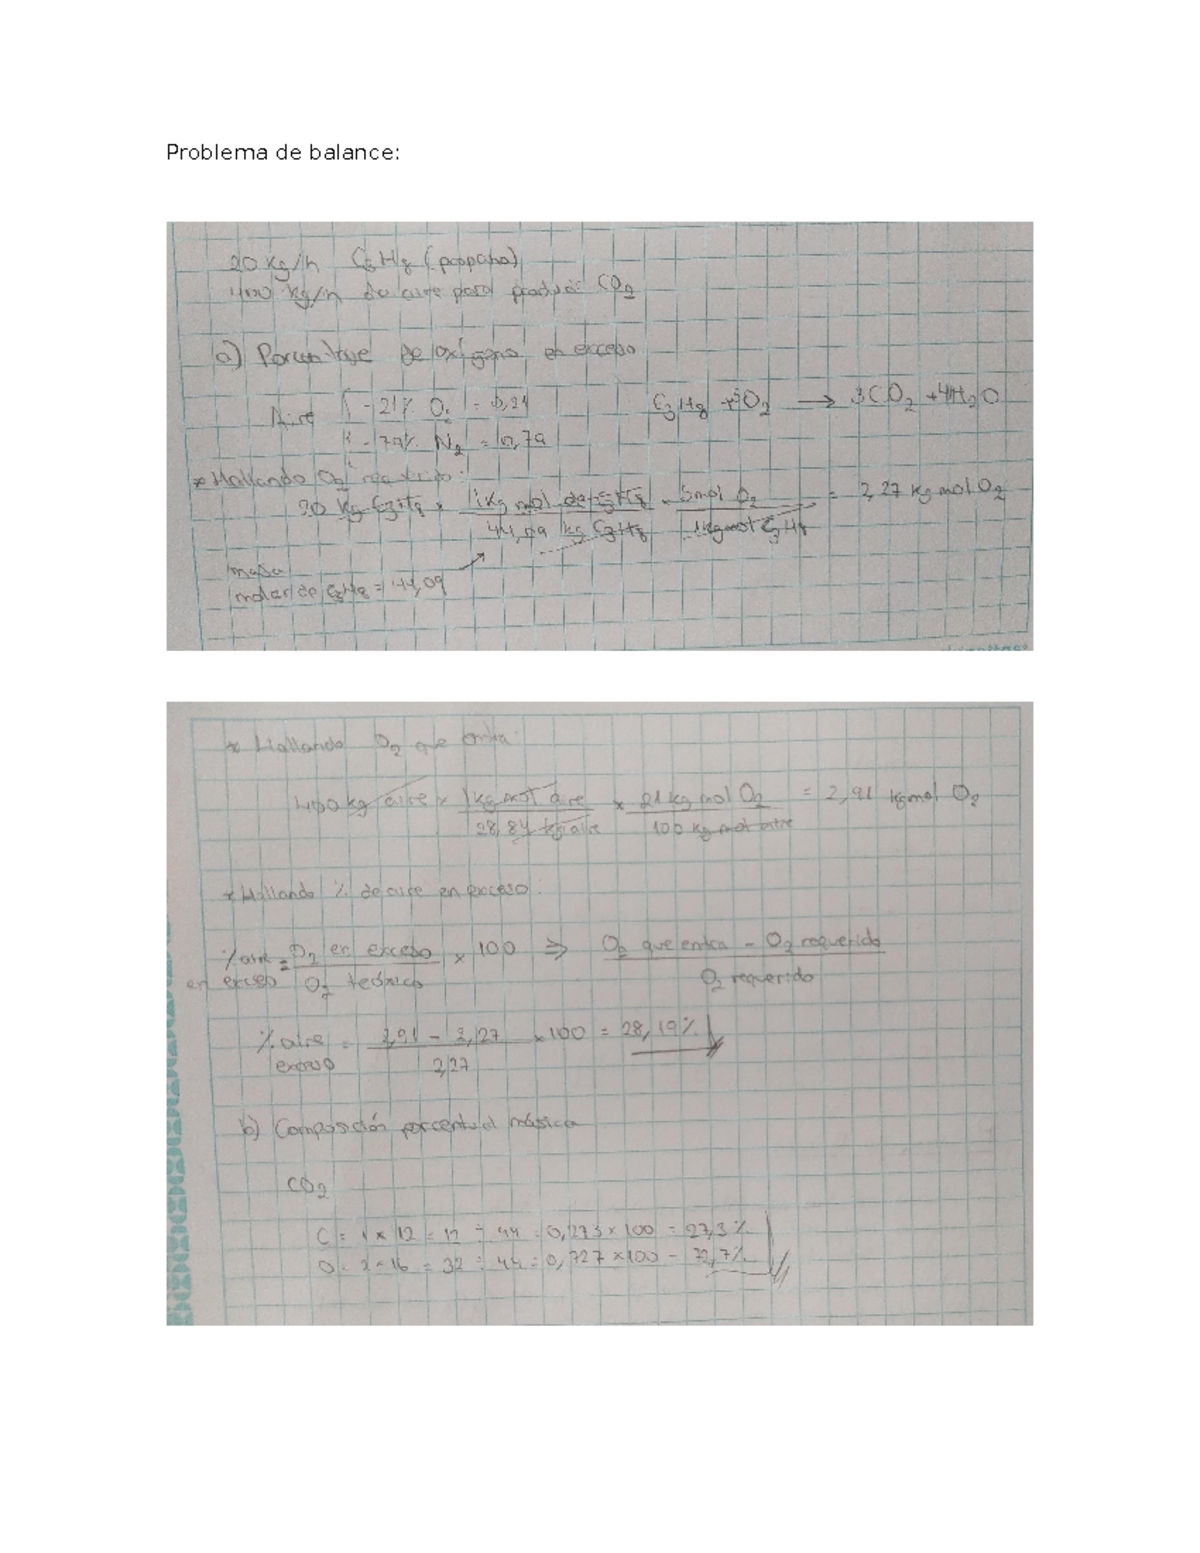 Problema de balance:
20 kg/h C3H8 (propano)
400 kg/h de aire para producir CO2
a) Porcentaje de oxígeno en exceso
Aire { - 21% O2 = 0,21
- 79% N2 = 0,79
C3H8 + 5O2 → 3CO2 + 4H2O
* Hallando O2 requerido:
20 kg C3H8 × 1 kg mol de C3H8 / 44,09 kg C3H8 × 5 mol O2 / 1 kg mol C3H8 = 2,27 kg mol O2
masa
molar de C3H8 = 44,09
* Hallando O2 que entra:
400 kg aire × 1 kg mol aire / 28,84 kg aire × 21 kg mol O2 / 100 kg mol aire = 2,91 kgmol O2
* Hallando % de aire en exceso:
% aire en exceso = O2 en exceso / O2 teórico × 100 ⇒ O2 que entra - O2 requerido / O2 requerido
% aire exceso = 2,91 - 2,27 / 2,27 × 100 = 28,19%
b) Composición porcentual másica
CO2
C = 1 × 12 = 12 ÷ 44 = 0,273 × 100 = 27,3%
O = 2 × 16 = 32 ÷ 44 = 0,727 × 100 = 72,7%